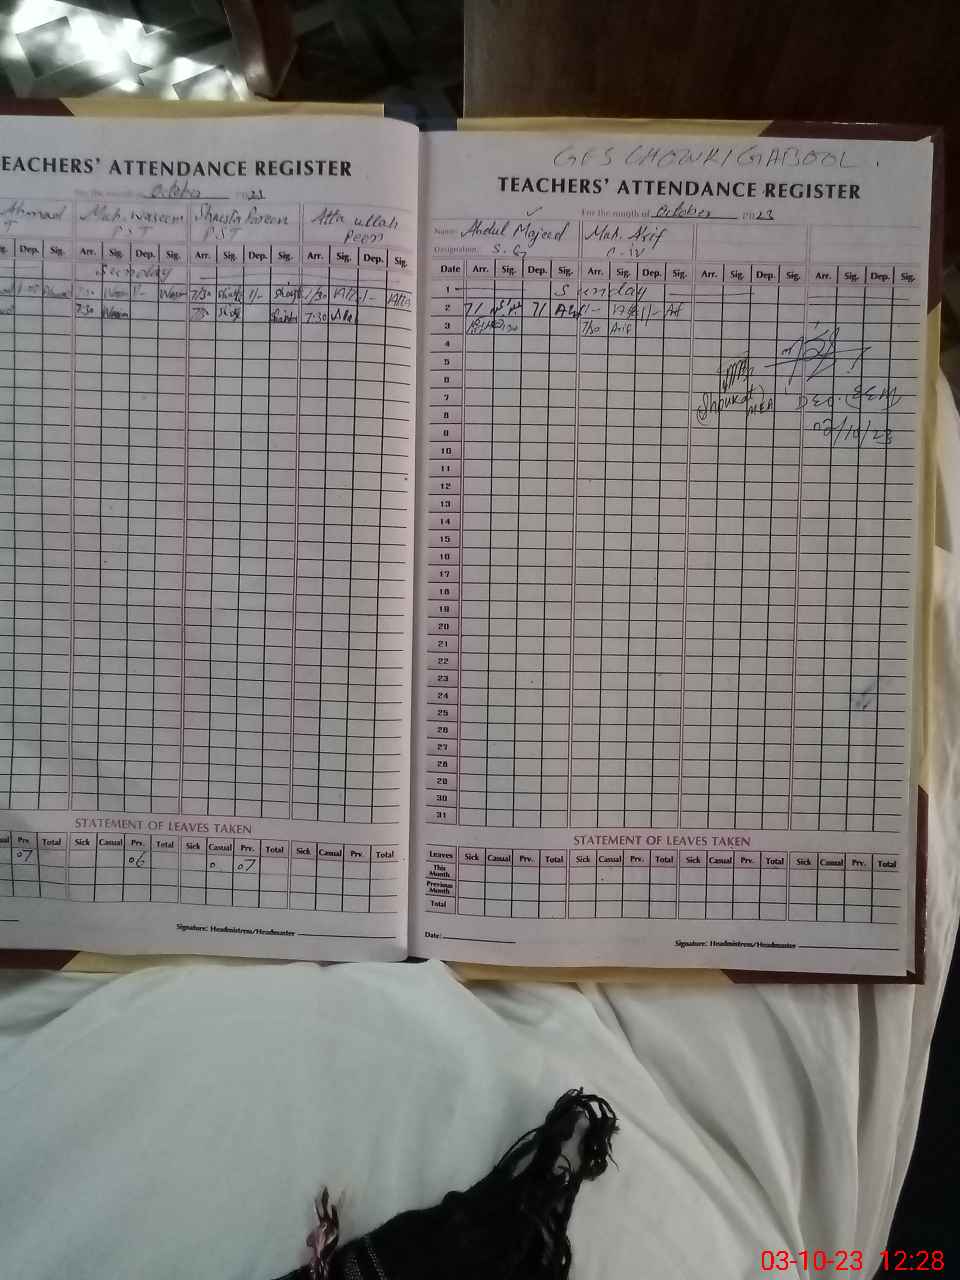 TEACHERS' ATTENDANCE REGISTER
For the month of October 2023
Ahmad Muh. Waseem Shaista Atta ullah
T PST PST Peon
Dep. Sig. Arr. Sig. Dep. Sig. Arr. Sig. Dep. Sig. Arr. Sig. Dep. Sig.
Sunday
7:30 1/- 7/30 1/- 7/30 1/- Atta
7:30 7:30
STATEMENT OF LEAVES TAKEN
Prv. Total Sick Casual Prv. Total Sick Casual Prv. Total Sick Casual Prv. Total
07 06 0 07
Signature: Headmistress/Headmaster
GES CHOWKI GABOOL.
TEACHERS' ATTENDANCE REGISTER
For the month of October 2023
Name: Abdul Majeed Muh. Arif
Designation:
Date Arr. Sig. Dep. Sig. Arr. Sig. Dep. Sig. Arr. Sig. Dep. Sig. Arr. Sig. Dep. Sig.
1 Sunday
2 7/ 7/ 1/-
3 7/30 Arif
4
5
6
7 Shoukat
8 MEA
9 02/10/23
10
11
12
13
14
15
16
17
18
19
20
21
22
23
24
25
26
27
28
29
30
31
STATEMENT OF LEAVES TAKEN
Leaves Sick Casual Prv. Total Sick Casual Prv. Total Sick Casual Prv. Total Sick Casual Prv. Total
This Month
Previous Month
Total
Date:
Signature: Headmistress/Headmaster
03-10-23 12:28